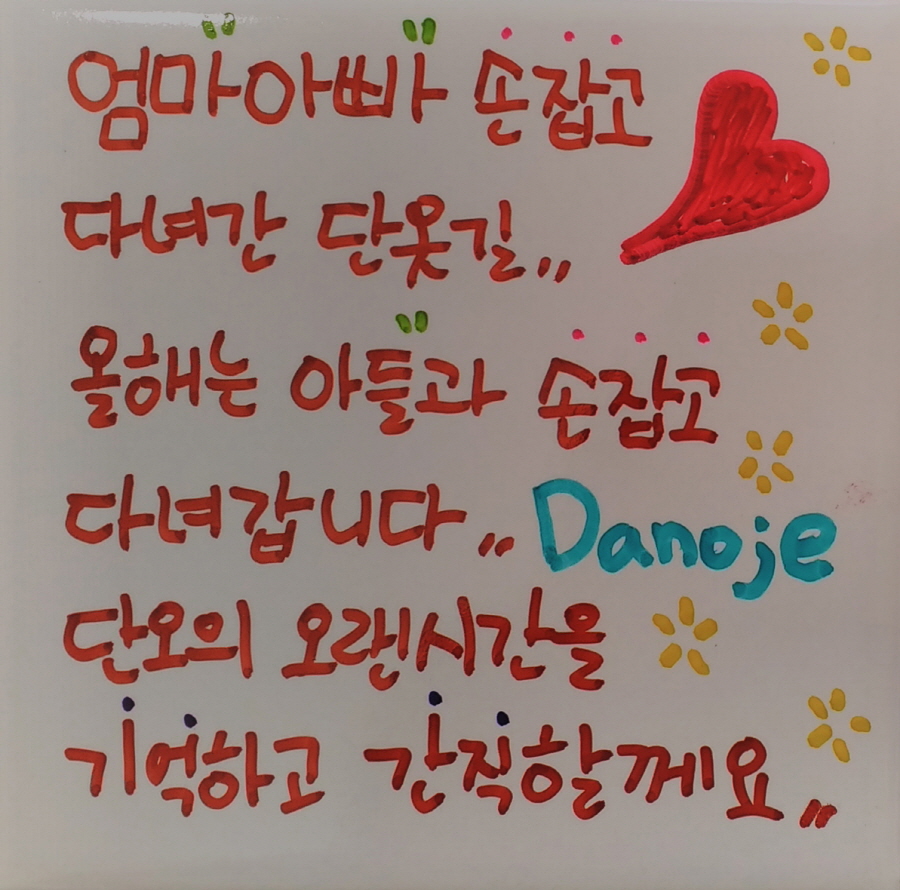 엄마아빠 손잡고
다녀간 단옷길,,
올해는 아들과 손잡고
다녀갑니다,, Danoje
단오의 오랜시간을
기억하고 간직할께요,,